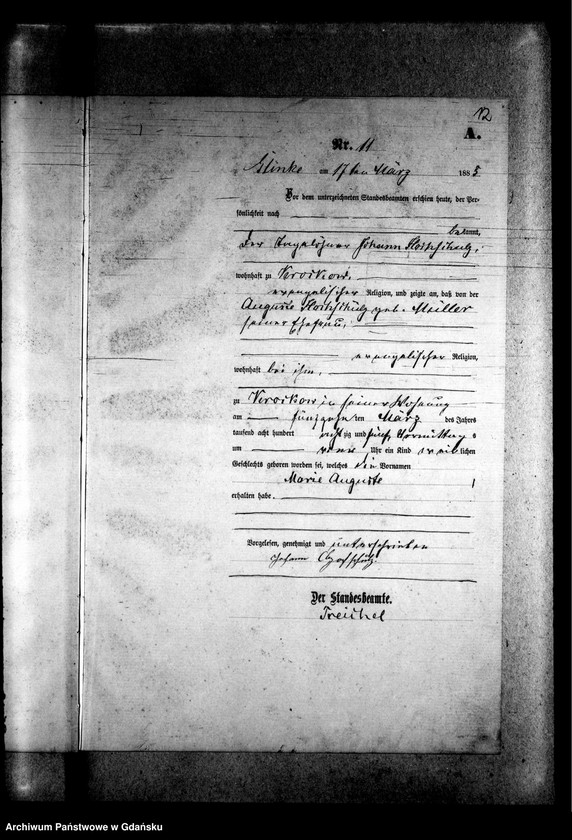 12
A.
Nr. 11
Glinke am 17ten März 1885
Vor dem unterzeichneten Standesbeamten erschien heute, der Per-
sönlichkeit nach
bekannt,
der Johann
wohnhaft zu
evangelischer Religion, und zeigte an, daß von der
Auguste geb. Müller
seiner Ehefrau,
evangelischer Religion,
wohnhaft bei ihm,
zu in seiner Wohnung
am fünfzehnten März des Jahrs
tausend acht hundert achtzig und fünf Vormittags
um neun Uhr ein Kind weiblichen
Geschlechts geboren worden sei, welches die Vornamen
Marie Auguste
erhalten habe.
Vorgelesen, genehmigt und unterschrieben
Johann
Der Standesbeamte.
Treichel
Archiwum Państwowe w Gdańsku